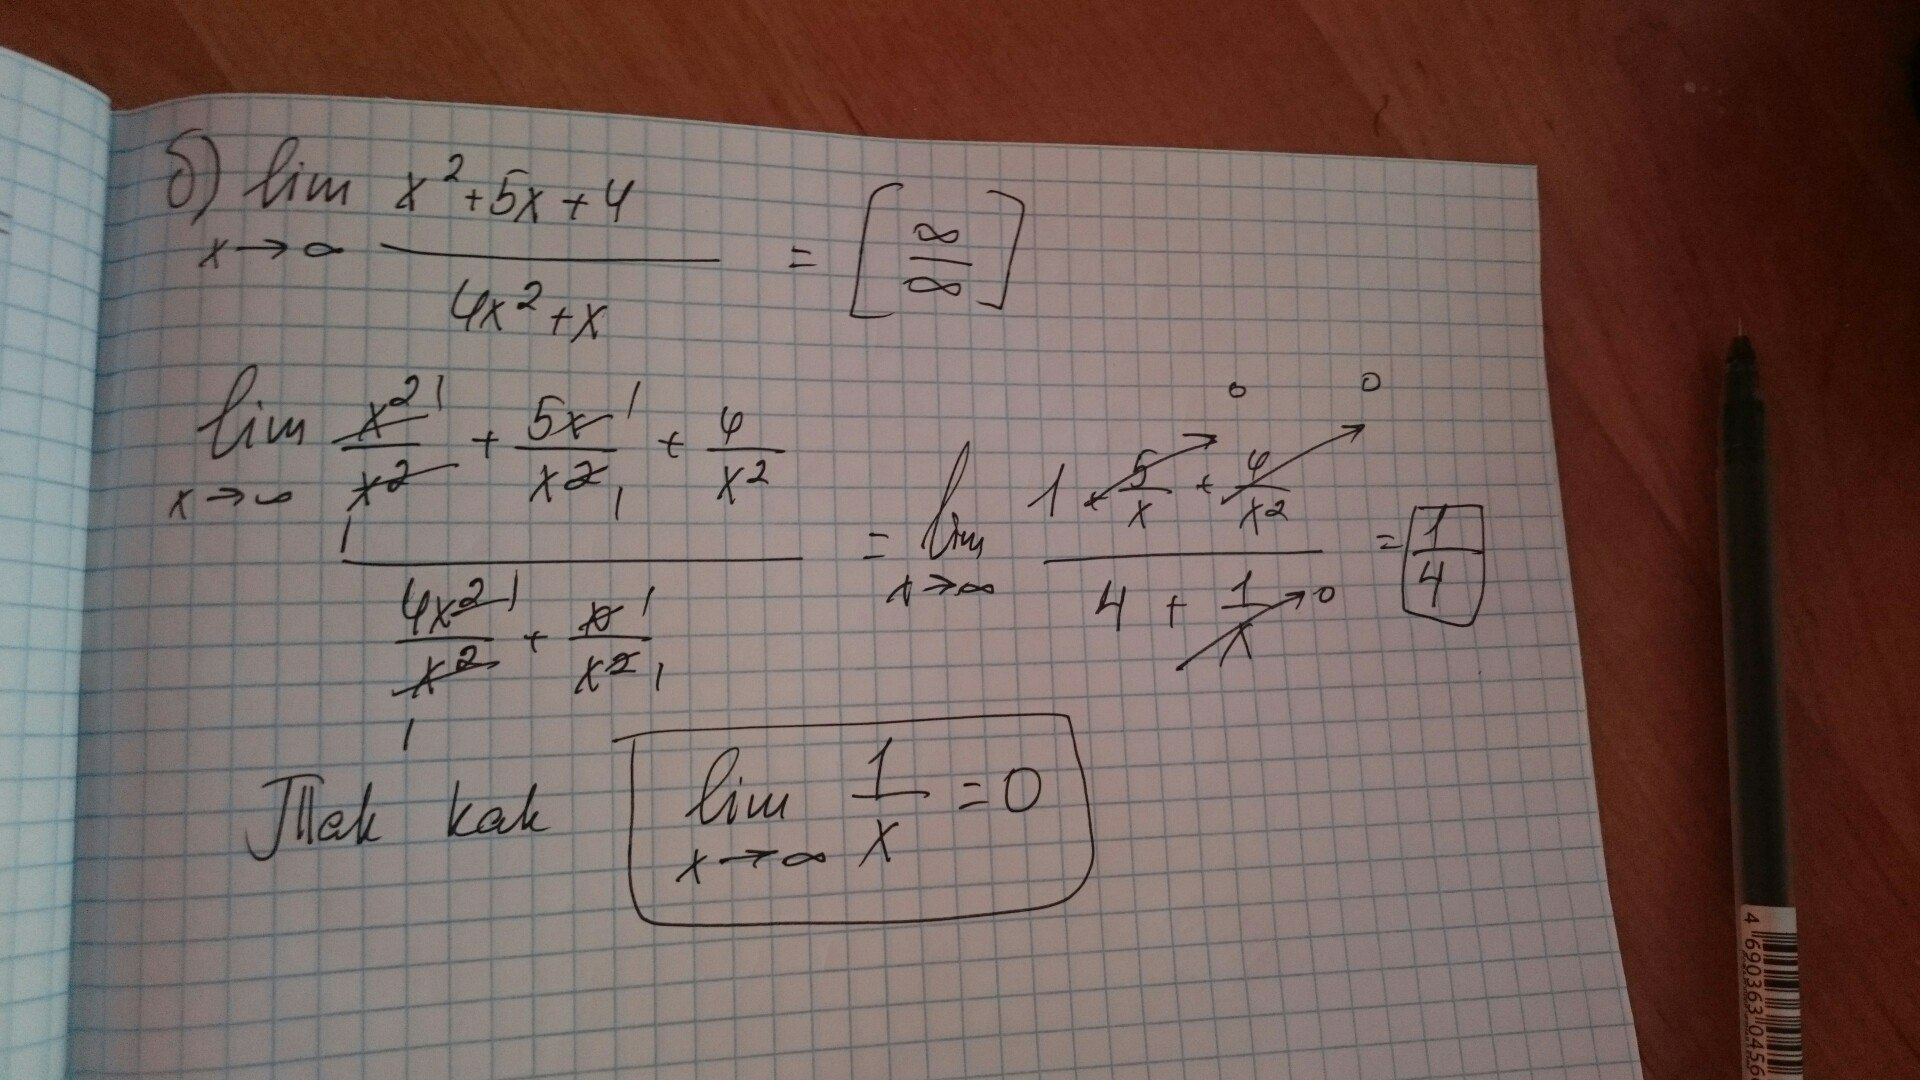 б) lim x→∞ (x² + 5x + 4)/(4x² + x) = [∞/∞]
lim x→∞ (x²/x² + 5x/x² + 4/x²)/(4x²/x² + x/x²) = lim x→∞ (1 + 5/x + 4/x²)/(4 + 1/x) = 1/4
Так как lim x→∞ 1/x = 0
4 690363 0456